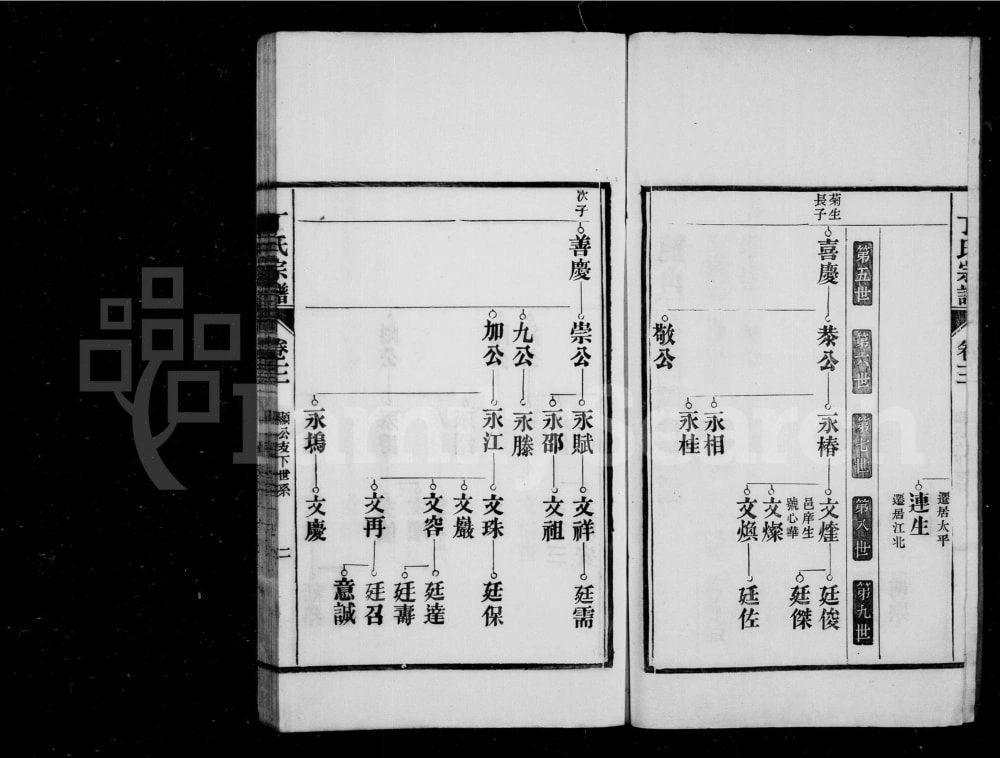 丁氏宗譜
卷三
遷居太平
連生
遷居江北
第五世
第六世
第七世
第八世
第九世
菊生
長子
喜慶
恭公
永椿
文煃
廷俊
廷傑
邑庠生
號心華
文燦
文煥
廷佐
永相
永桂
敬公
次子
善慶
崇公
永賦
文祥
廷需
永邵
文祖
九公
永滕
加公
永江
文珠
廷保
文巖
文容
廷達
廷壽
文再
廷召
意誠
永塢
文慶
丁氏宗譜
卷三
顯公支下世系
二
FamilySearch